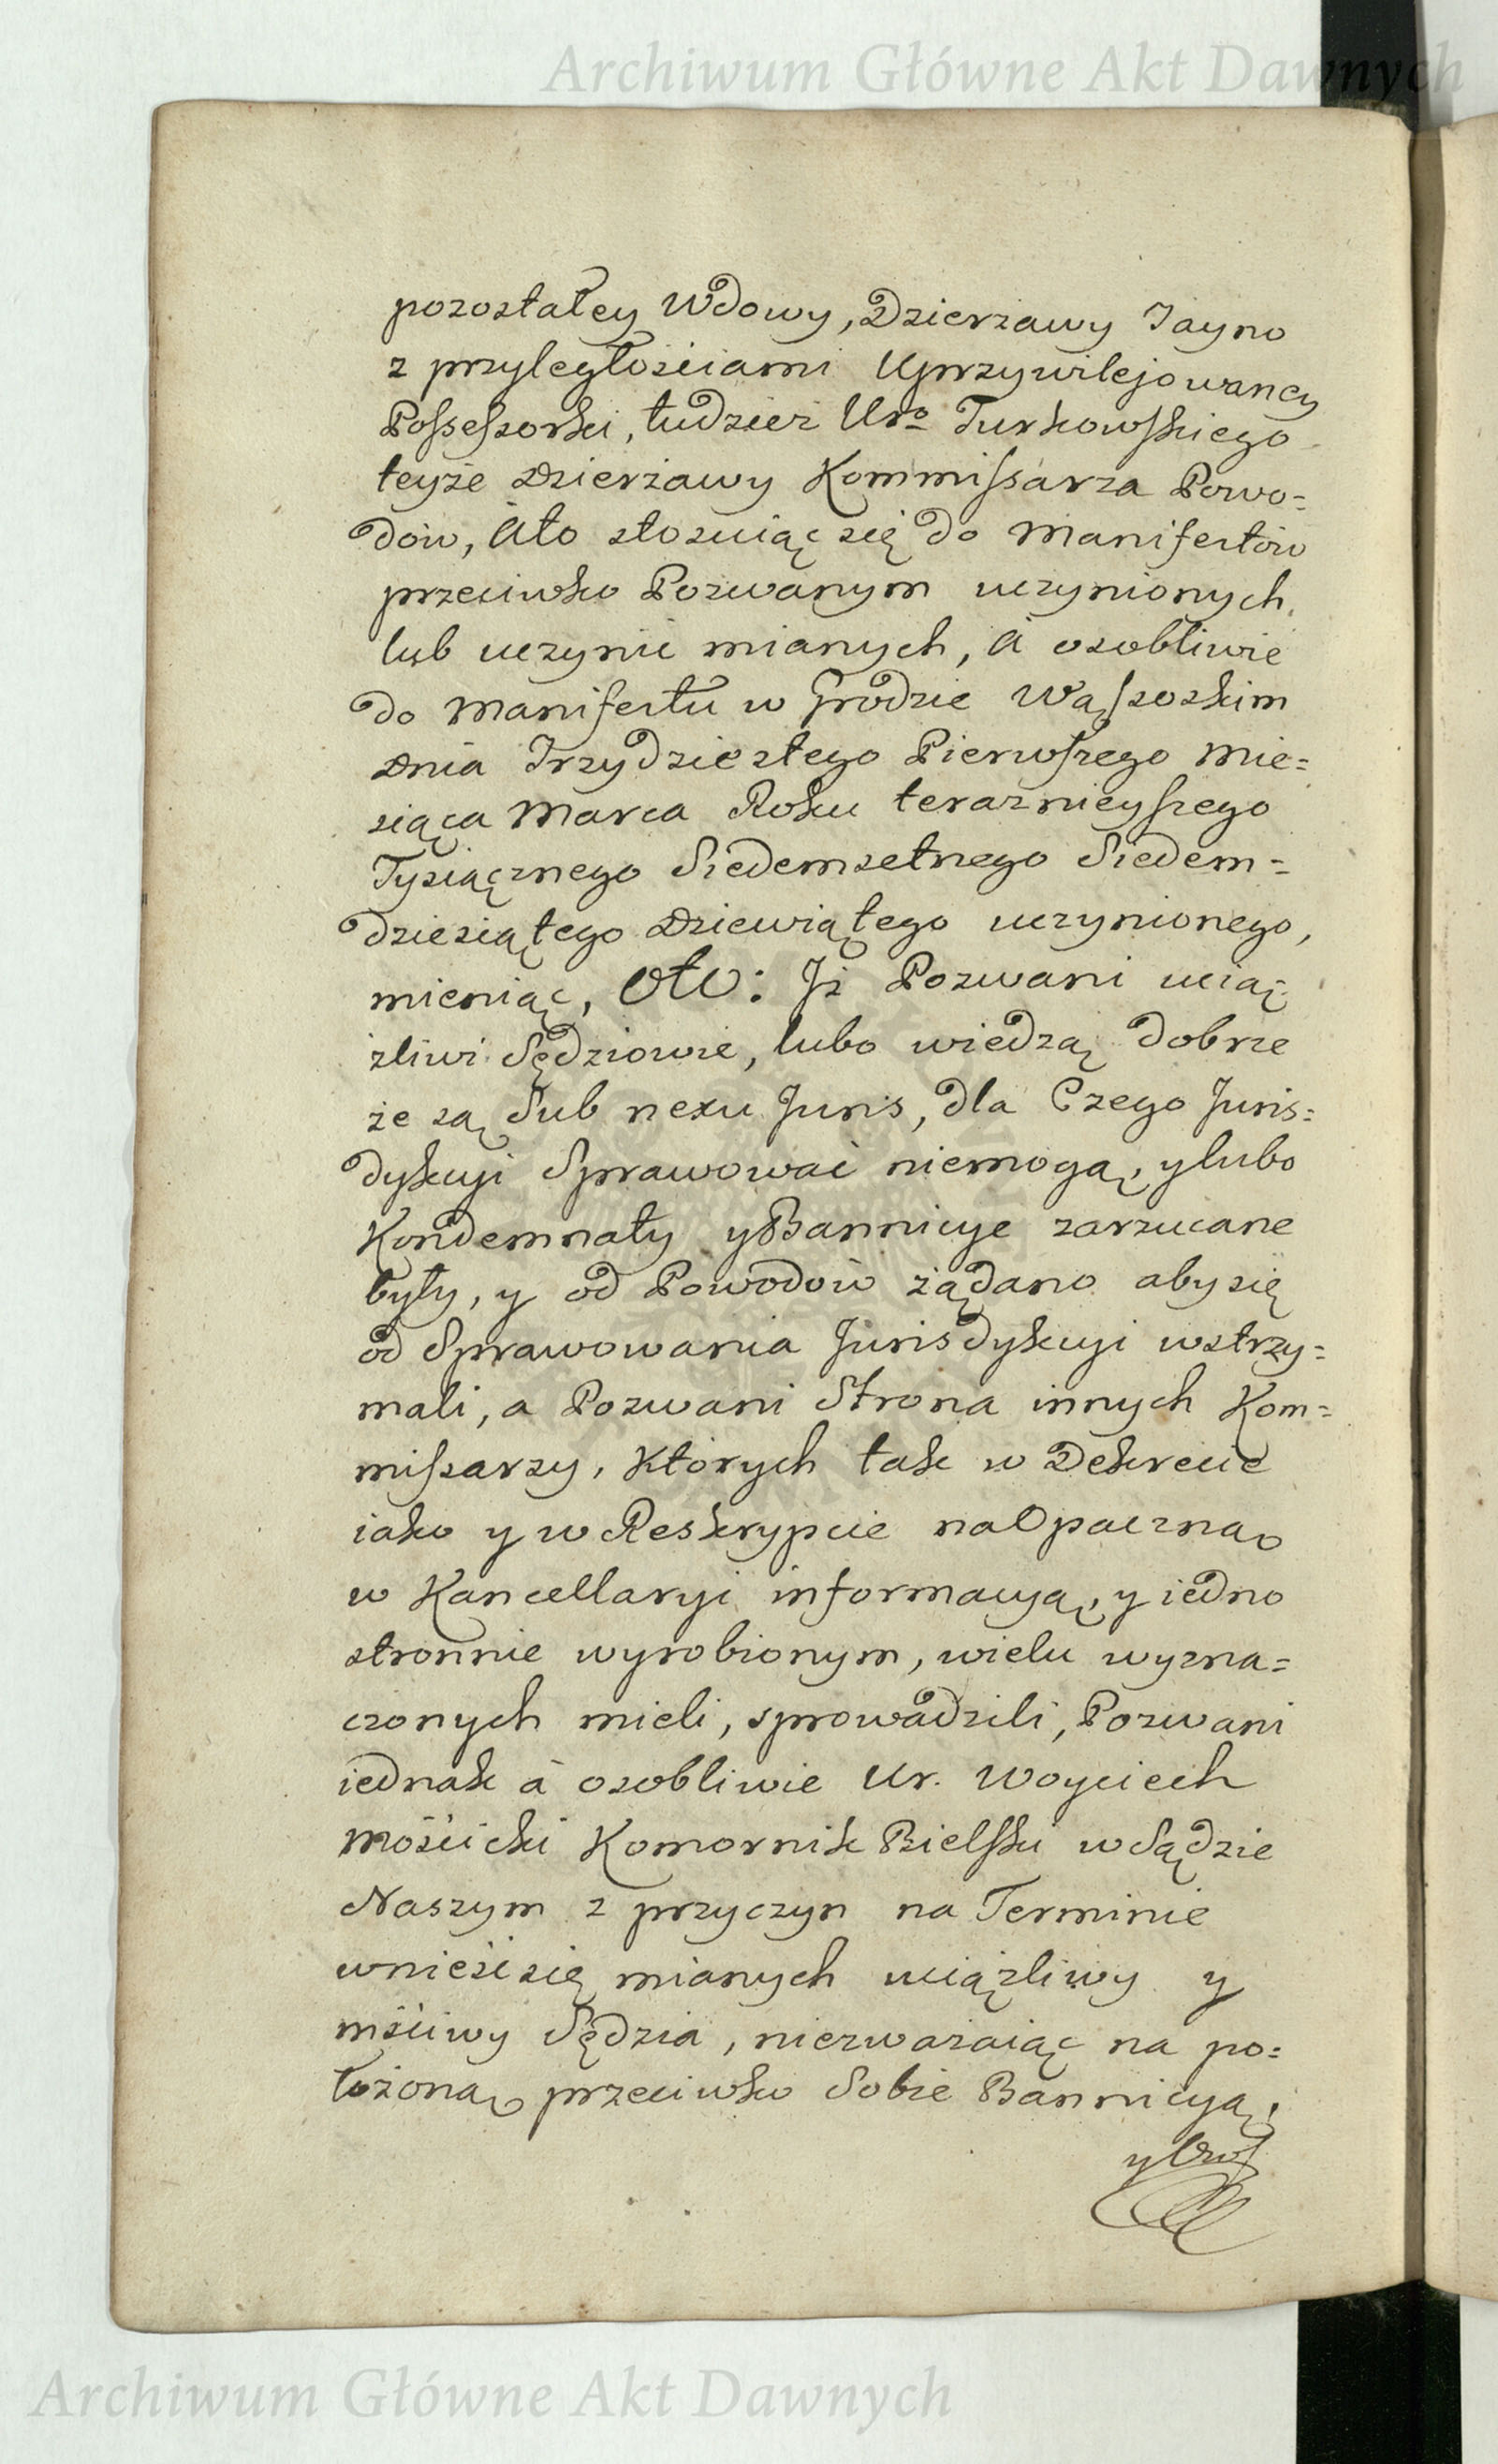 Archiwum Główne Akt Dawnych
pozostałey Wdowy, Dzierzawy Jayno
z przyległościami Uprzywilejowaney
Possessorki, tudzież Uro Turkowskiego
teyże Dzierżawy Kommissarza Powo=
dow, Ato stosuiąc się do Manifestow
przeciwko Pozwanym uczynionych,
lub uczynić mianych, A osobliwie
do Manifestu w Grodzie Wąsoskim
Dnia Trzydziestego Pierwszego Mie=
siąca Marca Roku teraznieyszego
Tysiącznego Siedemsetnego Siedem=
dziesiątego Dziewiątego uczynionego,
mieniąc, Oto: Jż Pozwani uciąż
żliwi Sędziowie, lubo wiedzą dobrze
że są Sub nexu Juris, dla Czego Juris=
dykcyi Sprawować niemogą, y lubo
Kondemnaty y Bannicye zarzucane
były, y od Powodow żądano aby się
od Sprawowania Jurisdykcyi wstrzy=
mali, a Pozwani Strona innych Kom=
missarzy, których tak w Dekrecie
iako y w Reskrypcie na Opaczną
w Kancellaryi informacyą, y iedno
stronnie wyrobionym, wielu wyzna=
czonych mieli, sprowadzili, Pozwani
iednak à osobliwie Ur. Woyciech
Mościcki Komornik Bielski w Sądzie
Naszym z przyczyn na Terminie
wnieść się mianych uciążliwy y
mściwy Sędzia, niezważaiąc na po=
łożoną przeciwko Sobie Bannicyą,
Archiwum Główne Akt Dawnych